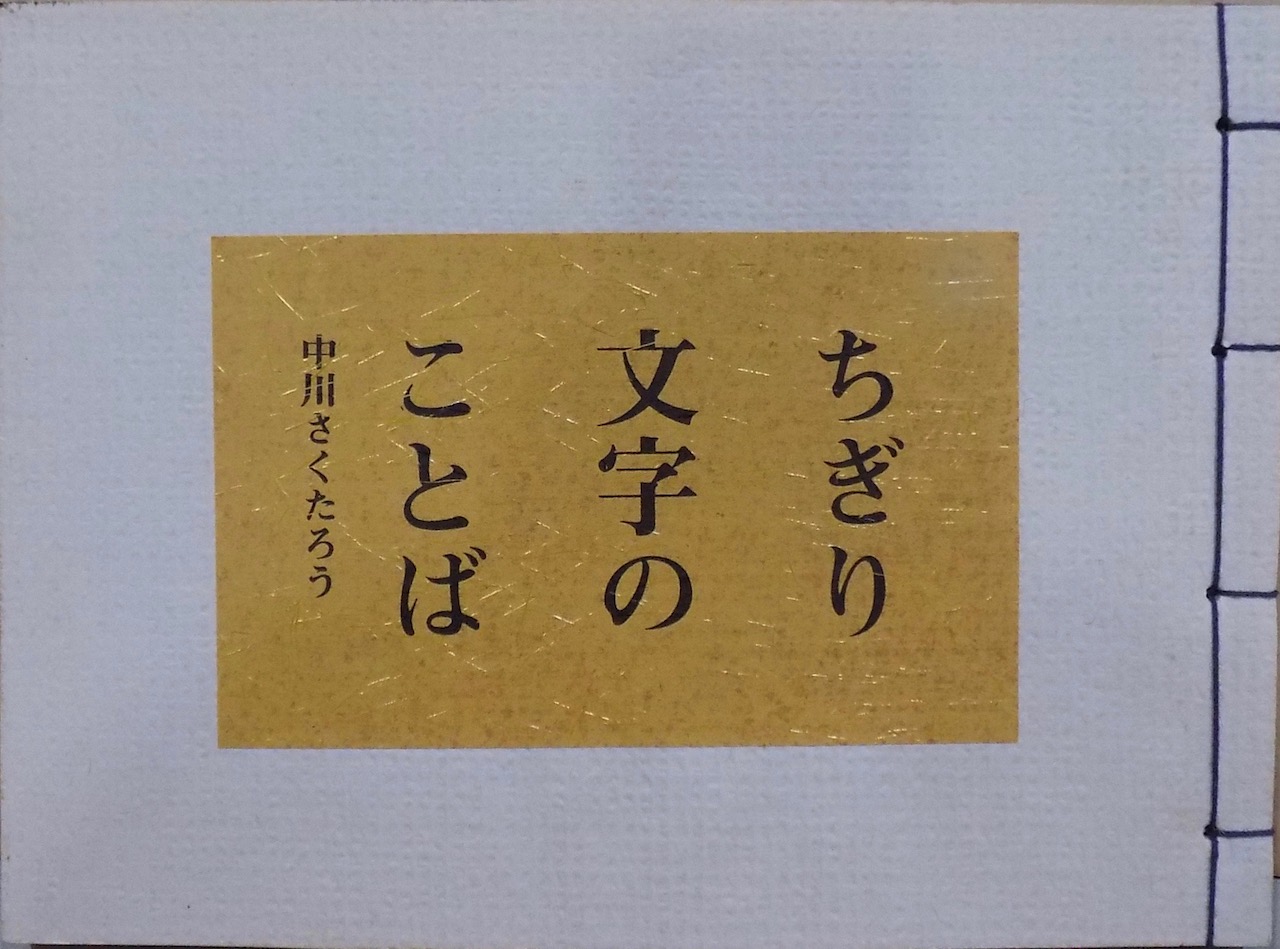 ちぎり
文字の
ことば
中川さくたろう